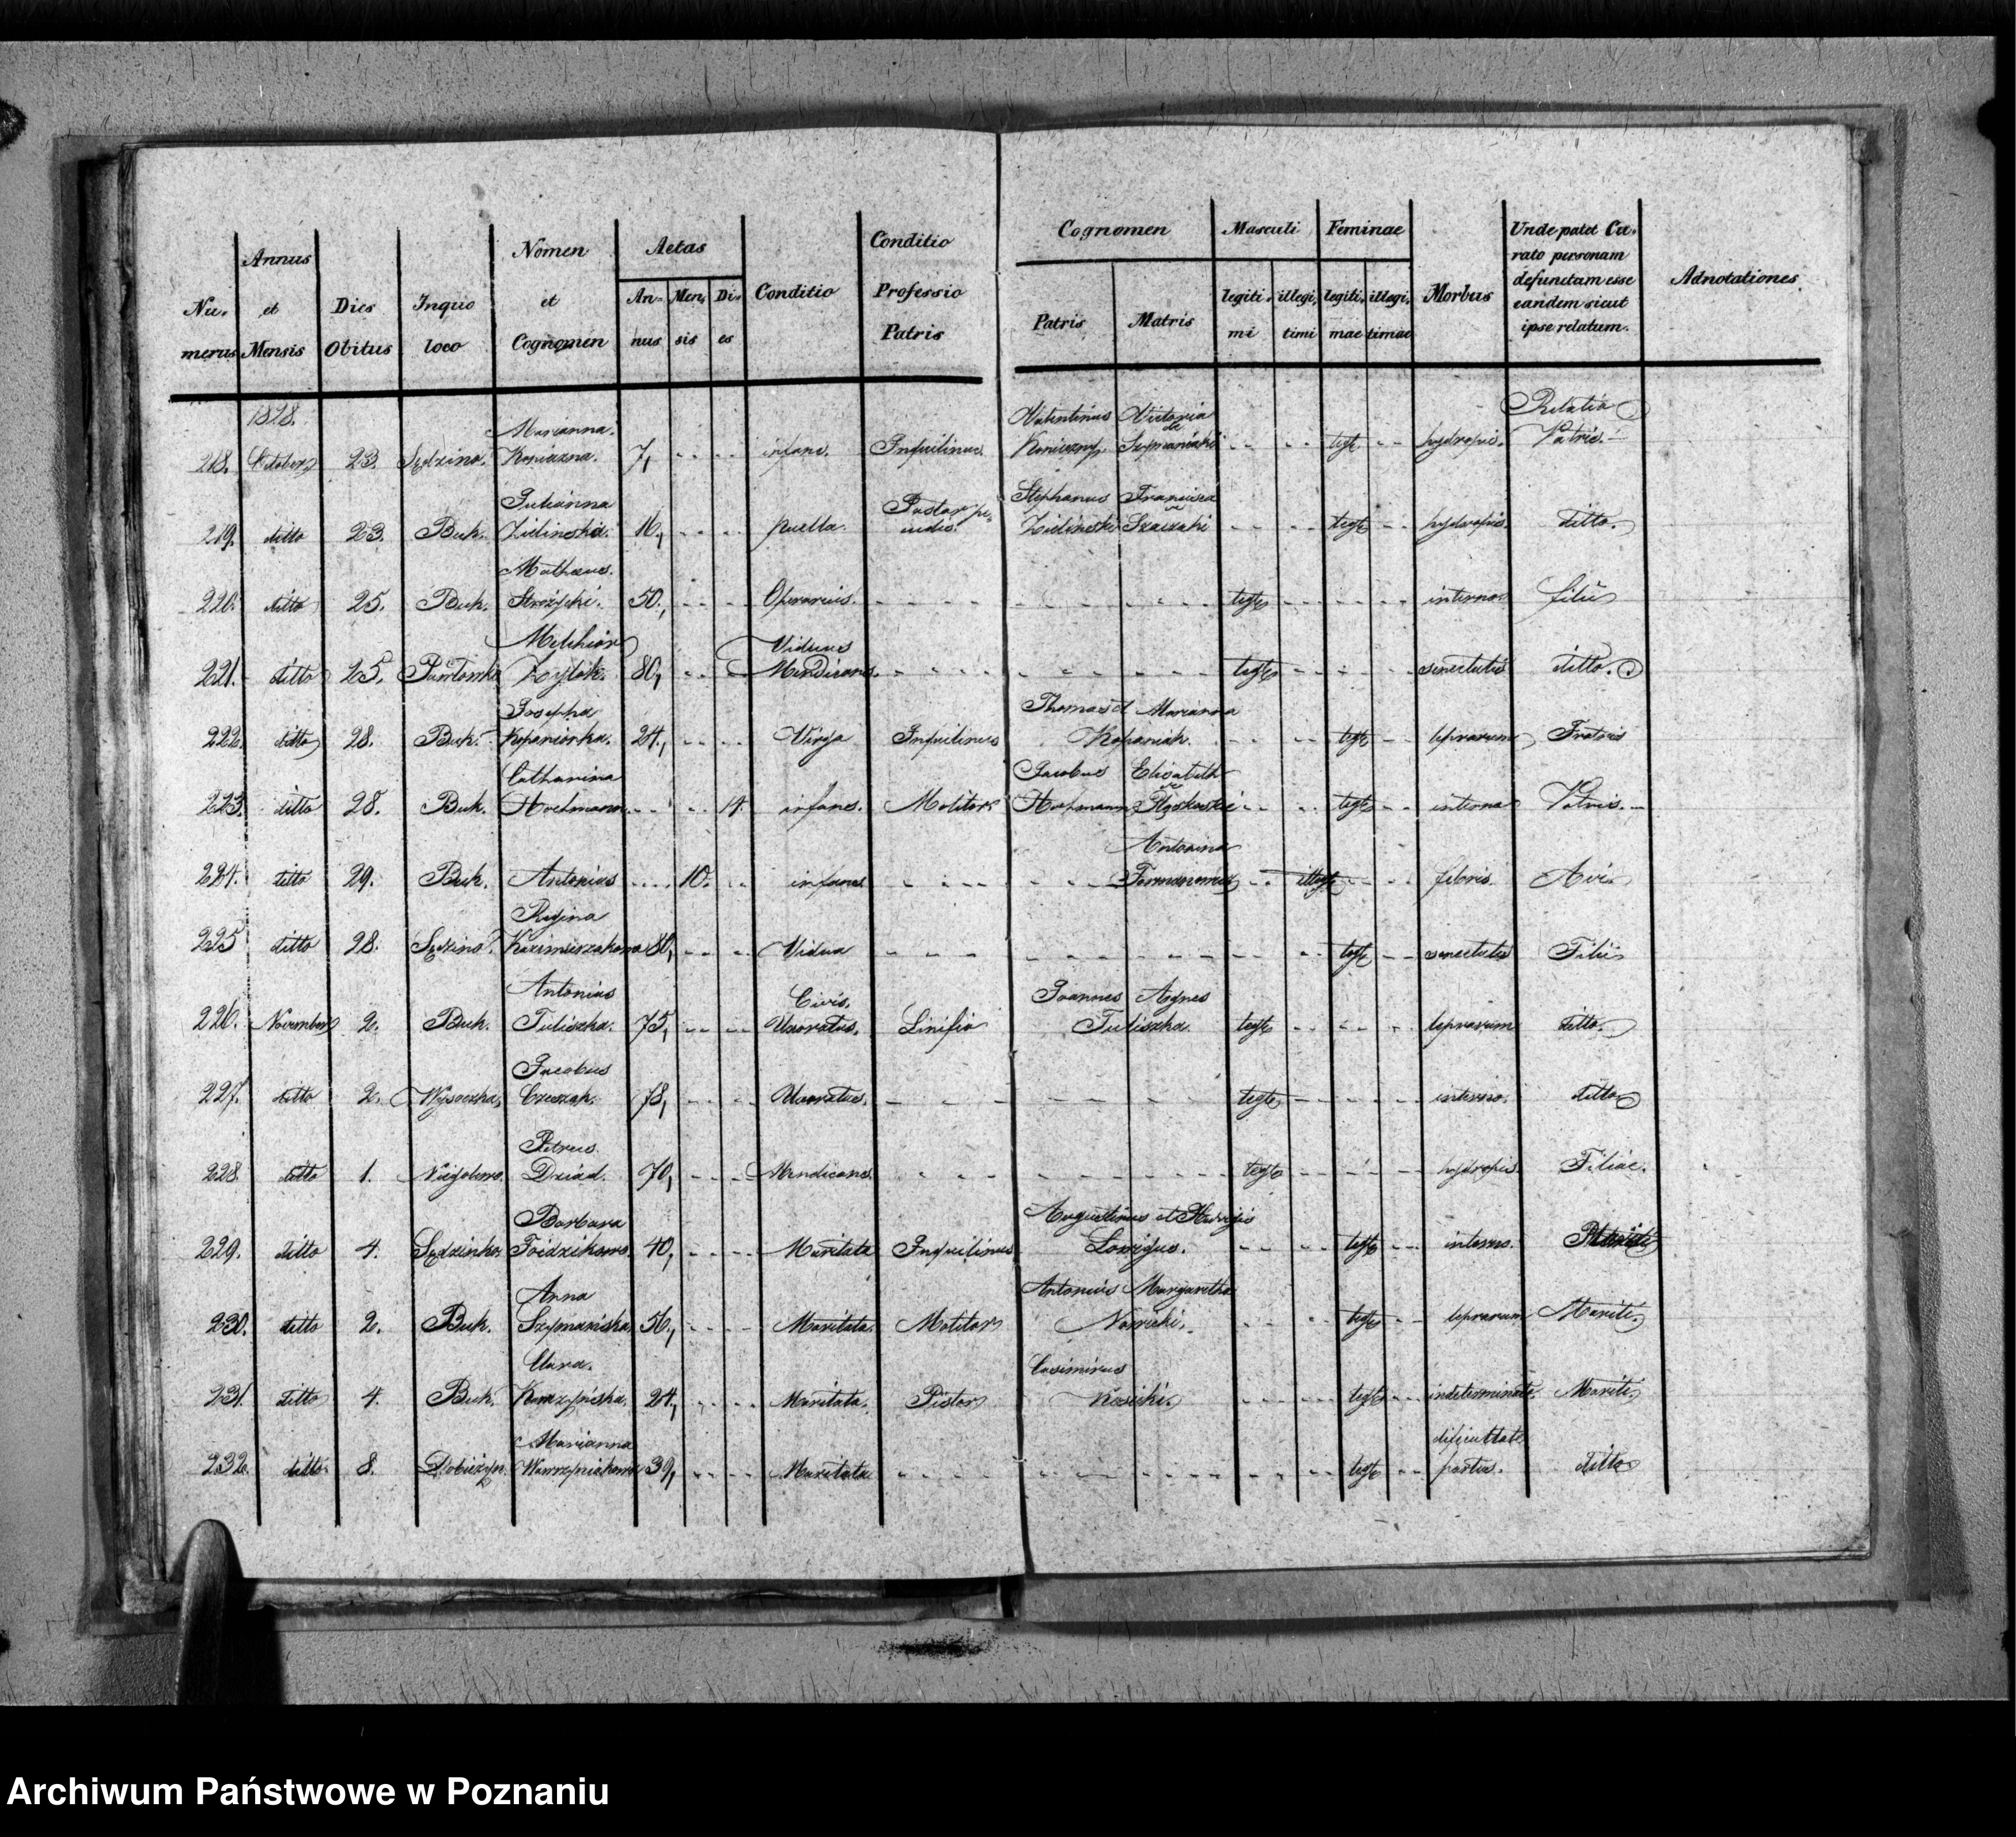 Numerus Annus et Mensis Dies Obitus In quo loco Nomen et Cognomen Aetas Annus Mensis Dies Conditio Conditio Professio Patris
Cognomen Patris Matris Masculi legitimi illegitimi Feminae legitimae illegitimae Morbus Unde patet Curato personam defunctam esse eandem sicut ipse relatum. Adnotationes.
1828.
218. October 23. Sędzino. Marianna Konieczna. 7, infans. Inquilinus. Valentinus Konieczny Victoria de Szymaniaki legt hydropis. Relatio Patris.
219. ditto 23. Buk. Julianna Zielinska. 16, puella. Pastor pe- cudis. Stephanus Zielinski Francisca de legte hydropis ditto.
220. ditto 25. Buk. Matheus Strozycki. 50, Operarius. legte interna filii
221. ditto 25. Melchior 80, Viduus Mendicans. legte senectutis ditto.
222. ditto 28. Buk. Josepha Kopaniorka. 24, Virgo Inquilinus Thomas et Marianna Kopaniak. legte leprarum Fratris
223. ditto 28. Buk. Catharina Hochmann 14 infans. Molitor Jacobus Elisabeth de legte interna Patris.
224. ditto 29. Buk. Antonius 10. infans Antonina illegte febris Avi
225 ditto 28. Sędzino. Regina Kazimierzakowa 80, Vidua legt senectutis Filii
226. November 2. Buk. Antonius Tuliszka. 75, Civis. Uxoratus. Linifio Joannes Agnes Tuliszka. legte leprarum ditto.
227. ditto 2. Wysoczka, Jacobus 78, Uxoratus. legte interna. ditto
228. ditto 1. Niegolewo. Petrus Dziad. 70, Mendicans. legte hydropis Filiae.
229. ditto 4. Sędzinko. Barbara 40, Maritata Inquilinus Augustinus et Hedvigis legte interna.
230. ditto 2. Buk. Anna Szymaniska, 56, Maritata. Molitor Antonius Margaretha Nowicki. legte leprarum Mariti.
231. ditto 4. Buk. Clara. 24, Maritata. Pistor Casimirus Kosicki. legte indeterminate. Mariti
232. ditto 8. Dobieżyn. Marianna Wawrzyniakowa 39, Maritata legte difficultate partu. ditto
Archiwum Państwowe w Poznaniu